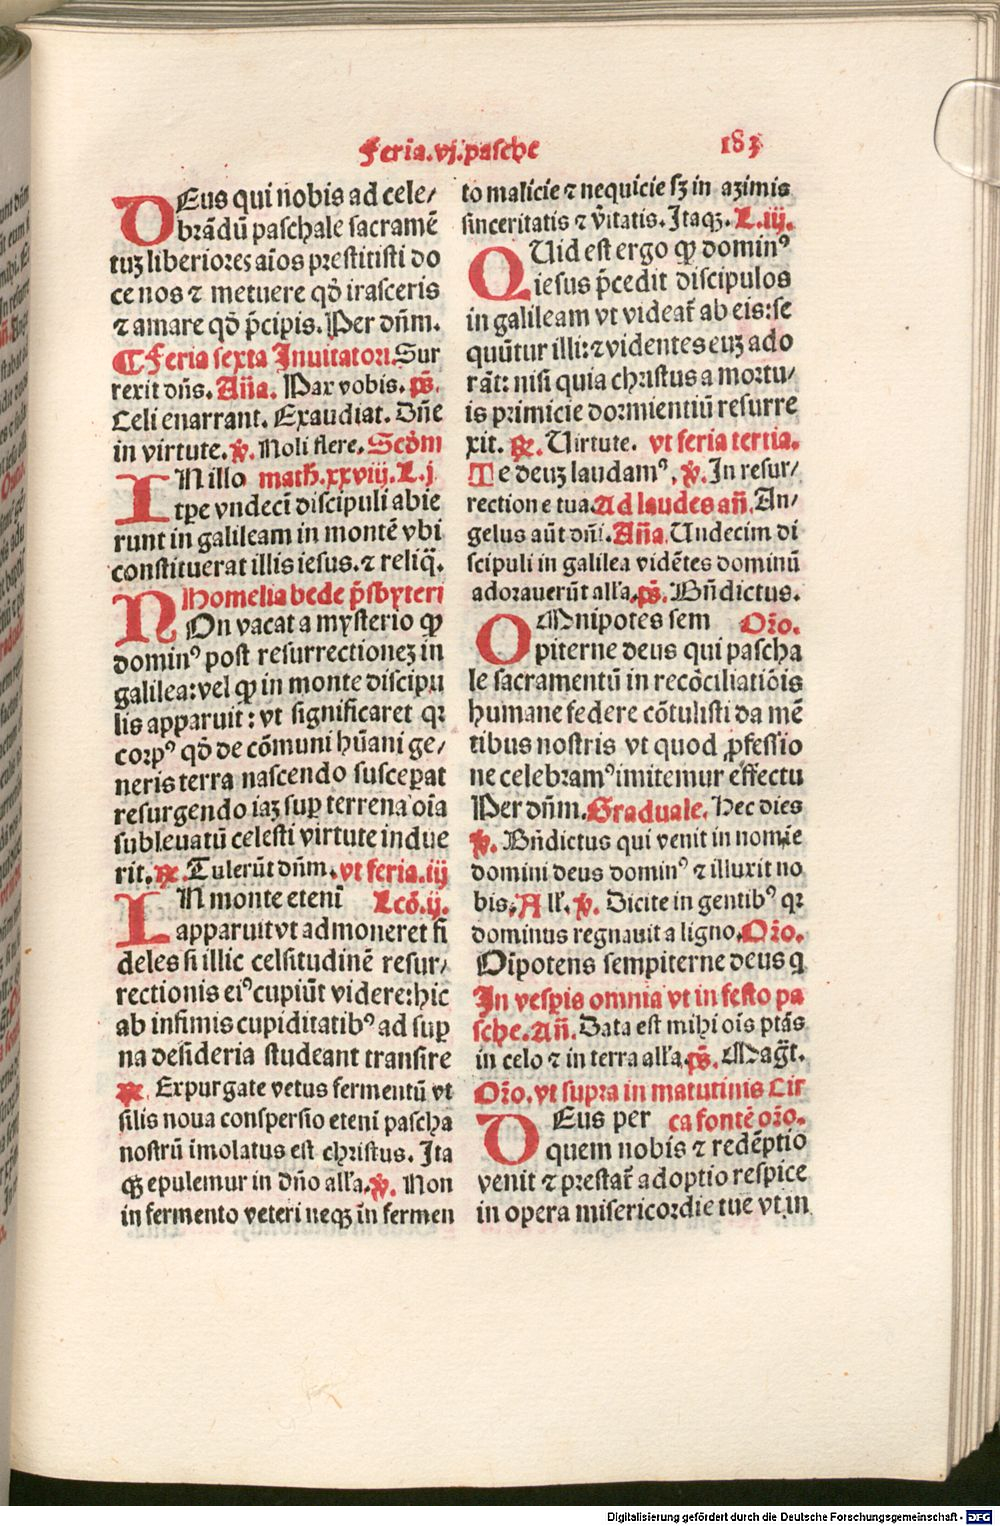 Feria.vj.pasche
183
DEus qui nobis ad cele/
brādū paschale sacramē
tuꝫ liberiores aīos prestitisti do
ce nos ⁊ metuere qd̄ irasceris
⁊ amare qd̄ p̄cipis. Per dn̄m.
¶ Feria sexta Inuitatori. Sur
rexit dn̄s. Añа. Pax vobis. ps̄.
Celi enarrant. Exaudiat. Dn̄e
in virtute. ꝟ. Noli flere. Scd̄m
IN illo math̄. xxviij. L.j
tꝑe vndecī discipuli abie
runt in galileam in montē vbi
constituerat illis iesus. ⁊ reliq̄.
Homelia bede p̄sbyteri
NOn vacat a mysterio ꝙ
dominꝰ post resurrectioneꝫ in
galilea: vel ꝙ in monte discipu
lis apparuit: vt significaret qꝛ
corpꝰ qd̄ de cōmuni hūani ge/
neris terra nascendo susceperat
resurgendo iaꝫ suꝑ terrena oīa
subleuatū celesti virtute indue
rit. ꝶ. Tulerūt dn̄m. vt feria.iij
IN monte etenī Lcō.ij.
apparuit vt admoneret fi
deles si illic celsitudinē resur/
rectionis eiꝰ cupiūt videre: hic
ab infimis cupiditatibꝰ ad suꝑ
na desideria studeant transire
ꝶ. Expurgate vetus fermentū vt
sitis noua conspersio eteni pascha
nostrū imolatus est christus. Ita
qꝫ epulemur in dn̄o all'a. ꝟ. Non
in fermento veteri neqꝫ in fermen
to malicie ⁊ nequicie sꝫ in azimis
sinceritatis ⁊ v̄itatis. Itaqꝫ. L.iij.
QUid est ergo ꝙ dominꝰ
iesus p̄cedit discipulos
in galileam vt videat̄ ab eis: se
quūtur illi: ⁊ videntes euꝫ ado
rāt: nisi quia christus a mortu/
is primicie dormientiū resurre
xit. ꝶ. Virtute. vt feria tertia.
Te deuꝫ laudamꝰ. ꝟ. In resur/
rectione tua. Ad laudes an̄. An/
gelus aūt dn̄i. Añа. Undecim di
scipuli in galilea vidētes dominū
adorauerūt all'a. ps̄. Bn̄dictus.
OMnipotes sem Oꝛ̄o.
piterne deus qui pascha
le sacramentū in recōciliatiōis
humane federe cōtulisti da mē
tibus nostris vt quod ꝓfessio
ne celebramꝰ imitemur effectu
Per dn̄m. Graduale. Hec dies
ꝟ. Bn̄dictus qui venit in nomīe
domini deus dominꝰ ⁊ illuxit no
bis. All'. ꝟ. Dicite in gentibꝰ qꝛ
dominus regnauit a ligno. Oꝛ̄o.
Oīpotens sempiterne deus q
In vesꝑis omnia vt in festo pa
sche. An̄. Data est mihi oīs ptās
in celo ⁊ in terra all'a. ps̄. Maḡt.
Oꝛ̄o. vt supra in matutinis Cir
DEus per ca fontē oꝛ̄o.
quem nobis ⁊ redēptio
venit ⁊ prestat̄ adoptio respice
in opera misericordie tue vt in
Digitalisierung gefördert durch die Deutsche Forschungsgemeinschaft - DFG